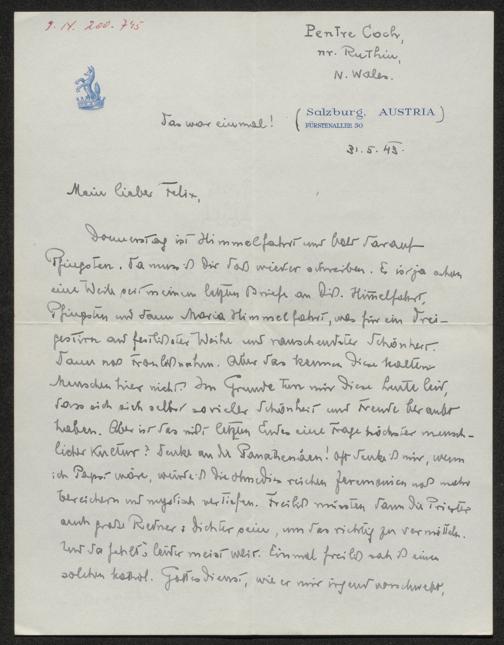 9. IV. 200.745
Pentre Coch,
nr. Ruthin,
N. Wales.
(Salzburg, AUSTRIA)
FÜRSTENALLEE 50
Das war einmal!
31.5.43.
Mein lieber Felix,
Donnerstag ist Himmelfahrt und bald darauf
Pfingsten. Da muss ich Dir doch wieder schreiben. Es ist ja schon
eine Weile seit meinem letzten Briefe an Dich. Himmelfahrt,
Pfingsten und dann Maria Himmelfahrt, was für ein Drei-
gestirn an festlichster Weihe und rauschendster Schönheit.
Dann noch Fronleichnam. Aber das kennen diese kalten
Menschen hier nicht. Im Grunde tun mir diese Leute leid,
dass sie sich selbst so vieler Schönheit und Freude beraubt
haben. Aber ist das nicht letzten Endes eine Frage höchster mensch-
licher Kultur? Denke an die Panathenäen! Oft denke ich mir, wenn
ich Papst wäre, würde ich die ohnedies reichen Zeremonien noch mehr
bereichern und mystisch vertiefen. Freilich müssten dann die Priester
auch große Redner & Dichter sein, um das richtig zu vermitteln.
Und da fehlt's leider meist weit. Einmal freilich sah ich einen
solchen kathol. Gottesdienst, wie er mir irgend vorschwebt,